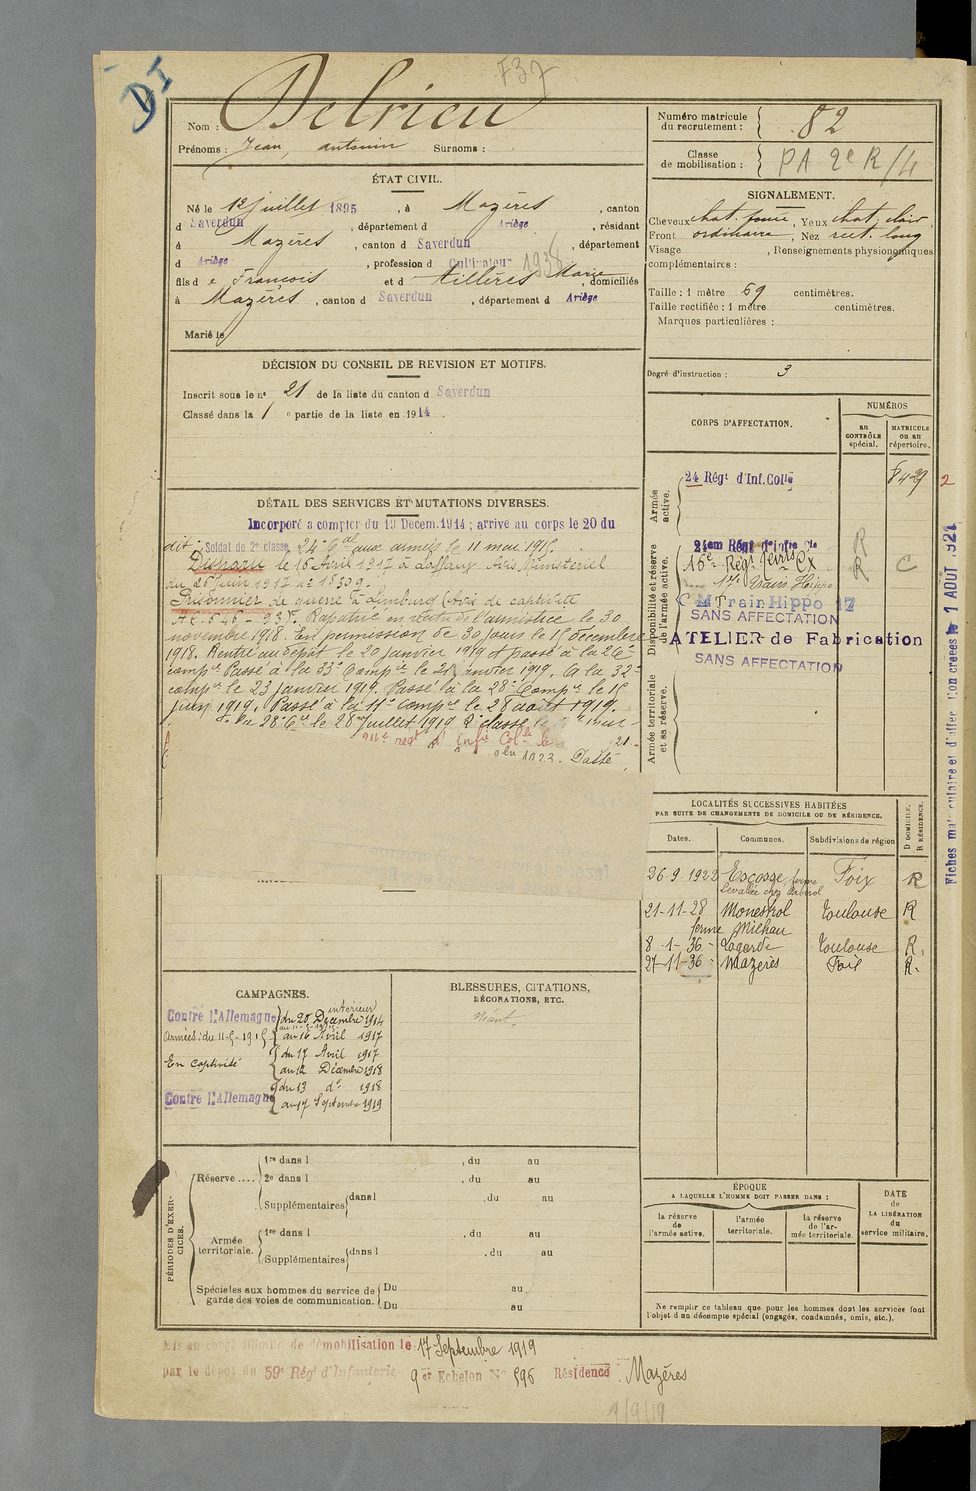 DI
737
Nom : Delrieu
Prénoms : Jean, antonin Surnoms :
Numéro matricule du recrutement : 82
Classe de mobilisation : PA 2e R/4
ÉTAT CIVIL.
Né le 12 juillet 1895, à Mazères, canton
d Saverdun, département d Ariège, résidant
à Mazères, canton d Saverdun, département
d Ariège, profession d Cultivateur
fils d e François et d Tillères Marie, domiciliés
à Mazères, canton d Saverdun, département d Ariège
Marié le
SIGNALEMENT.
Cheveux chat. foncé, Yeux chat. clair
Front ordinaire, Nez rect. long
Visage , Renseignements physionomiques
complémentaires :
Taille : 1 mètre 69 centimètres.
Taille rectifiée : 1 mètre centimètres.
Marques particulières :
Degré d'instruction : 3
DÉCISION DU CONSEIL DE REVISION ET MOTIFS.
Inscrit sous le n° 21 de la liste du canton d Saverdun
Classé dans la 1 e partie de la liste en 1914.
DÉTAIL DES SERVICES ET MUTATIONS DIVERSES.
Incorporé à compter du 19 Décem. 1914 ; arrivé au corps le 20 du
dit. Soldat de 2e classe 24e Cal aux armées le 11 mai 1915.
Disparu le 16 Avril 1917 à Laffaux Avis Ministeriel
du 26 Juin 1917 n°
Prisonnier de guerre à Limburg (Avis de captivité
Rapatrié en vertu de l'armistice le 30
novembre 1918. En permission de 30 jours le 15 décembre
1918. Rentré au dépôt le 20 janvier 1919 et passé à la 26e
compie Passé à la 33e Compie le 21 janvier 1919. A la 32e
compie le 23 janvier 1919. Passé à la 28e Compie le 15
juin 1919. Passé à la 11e compie le 28 août 1919.
En 28e Cie le 28 Juillet 1919 2e classe le
regt d'Infie Colle
1923. Passé
CORPS D'AFFECTATION.
NUMÉROS
au CONTRÔLE spécial.
MATRICULE ou au répertoire.
Armée active.
24 Régt d'Inf. Colle
2
Disponibilité et réserve de l'armée active.
24em Régt d'Infie Cle
R
16e Régt
R
C
Train Hippo
C M Train Hippo 17
SANS AFFECTATION
ATELIER de Fabrication
SANS AFFECTATION
Armée territoriale et sa réserve.
LOCALITÉS SUCCESSIVES HABITÉES
PAR SUITE DE CHANGEMENTS DE DOMICILE OU DE RÉSIDENCE.
Dates. Communes. Subdivisions de région D DOMICILE. R RÉSIDENCE.
26-9-1922 Escosse, ferme Foix R
21-11-28 Monestrol Toulouse R
ferme Milhau
8-1-36 Lagarde Toulouse R.
27-11-36 Mazères Foix R.
CAMPAGNES.
Contre l'Allemagne intérieur du 20 Décembre 1914
Armées : du 11-5-1915 au 16 Avril 1917
En captivité du 17 Avril 1917
au 12 Décembre 1918
Contre l'Allemagne du 13 do 1918
au 17 Septembre 1919
BLESSURES, CITATIONS,
DÉCORATIONS, ETC.
Néant.
PÉRIODES D'EXERCICES.
Réserve .... 1re dans l , du au
2e dans l , du au
Supplémentaires dans l , du au
Armée territoriale. 1re dans l , du au
Supplémentaires dans l , du au
Spéciales aux hommes du service de garde des voies de communication. Du au
Du au
ÉPOQUE
A LAQUELLE L'HOMME DOIT PASSER DANS :
la réserve de l'armée active.
l'armée territoriale.
la réserve de l'armée territoriale.
DATE de LA LIBÉRATION du service militaire.
Ne remplir ce tableau que pour les hommes dont les services font
l'objet d'un décompte spécial (engagés, condamnés, omis, etc.).
Mis en congé illimité de démobilisation le 17 Septembre 1919
par le dépôt du 59e Régt d'Infanterie 9 er Echelon N° 596 Résidence : Mazères